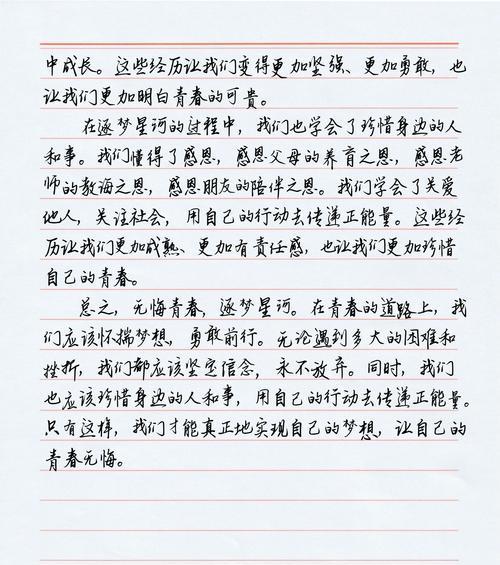 中成长。这些经历让我们变得更加坚强、更加勇敢，也
让我们更加明白青春的可贵。
在逐梦星河的过程中，我们也学会了珍惜身边的人
和事。我们懂得了感恩，感恩父母的养育之恩，感恩老
师的教诲之恩，感恩朋友的陪伴之恩。我们学会了关爱
他人，关注社会，用自己的行动去传递正能量。这些经
历让我们更加成熟、更加有责任感，也让我们更加珍惜
自己的青春。
总之，无悔青春，逐梦星河。在青春的道路上，我
们应该怀揣梦想，勇敢前行。无论遇到多大的困难和
挫折，我们都应该坚定信念，永不放弃。同时，我们
也应该珍惜身边的人和事，用自己的行动去传递正能量。
只有这样，我们才能真正地实现自己的梦想，让自己的
青春无悔。